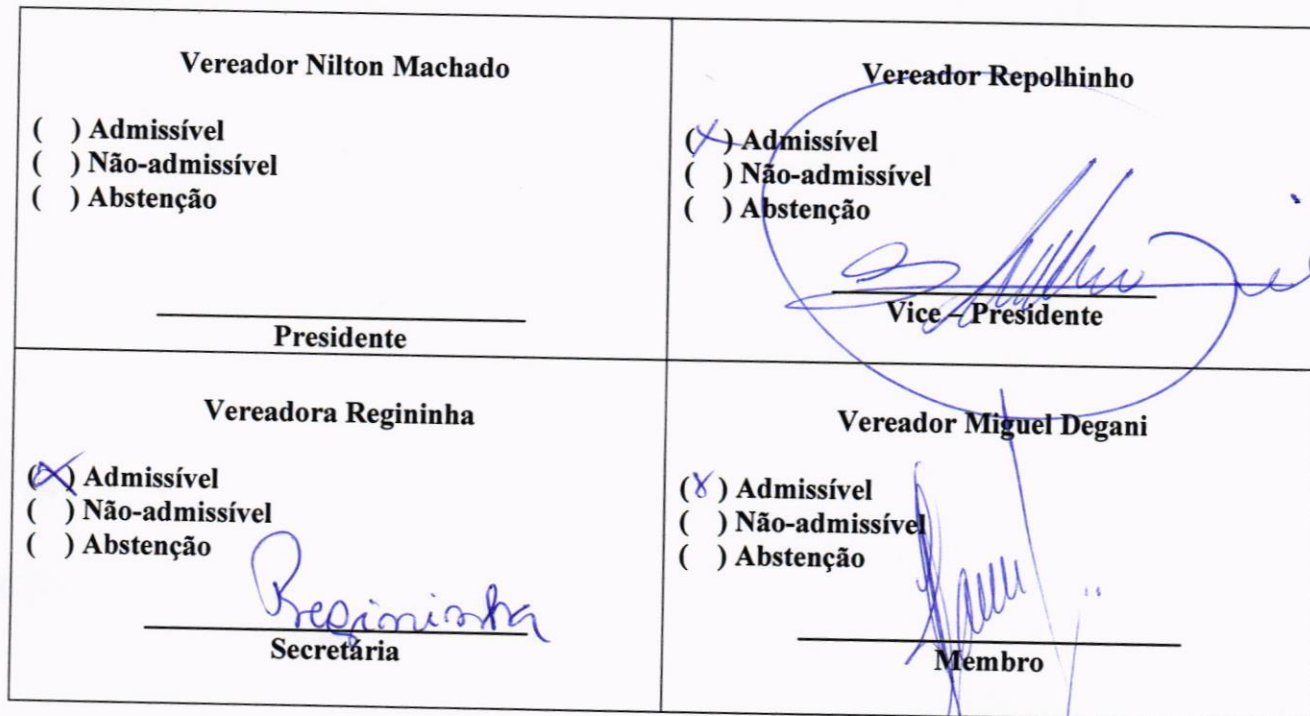 Vereador Nilton Machado
( ) Admissível
( ) Não-admissível
( ) Abstenção
Presidente
Vereador Repolhinho
(X) Admissível
( ) Não-admissível
( ) Abstenção
Vice – Presidente
Vereadora Regininha
(X) Admissível
( ) Não-admissível
( ) Abstenção
Regininha
Secretária
Vereador Miguel Degani
(X) Admissível
( ) Não-admissível
( ) Abstenção
Membro